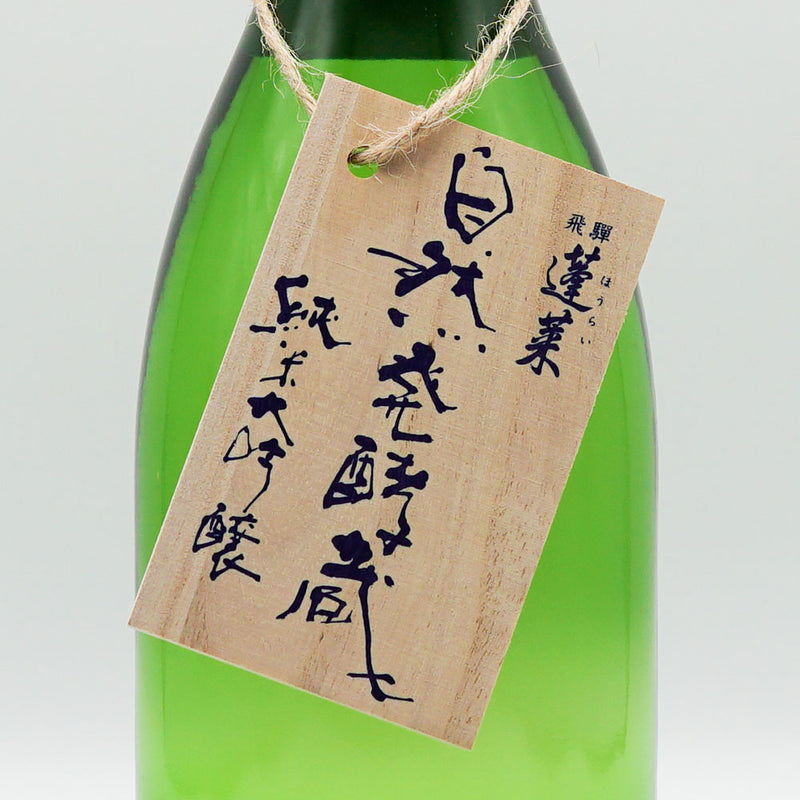 飛騨
蓬莱
ほうらい
自然発酵蔵
純米大吟醸